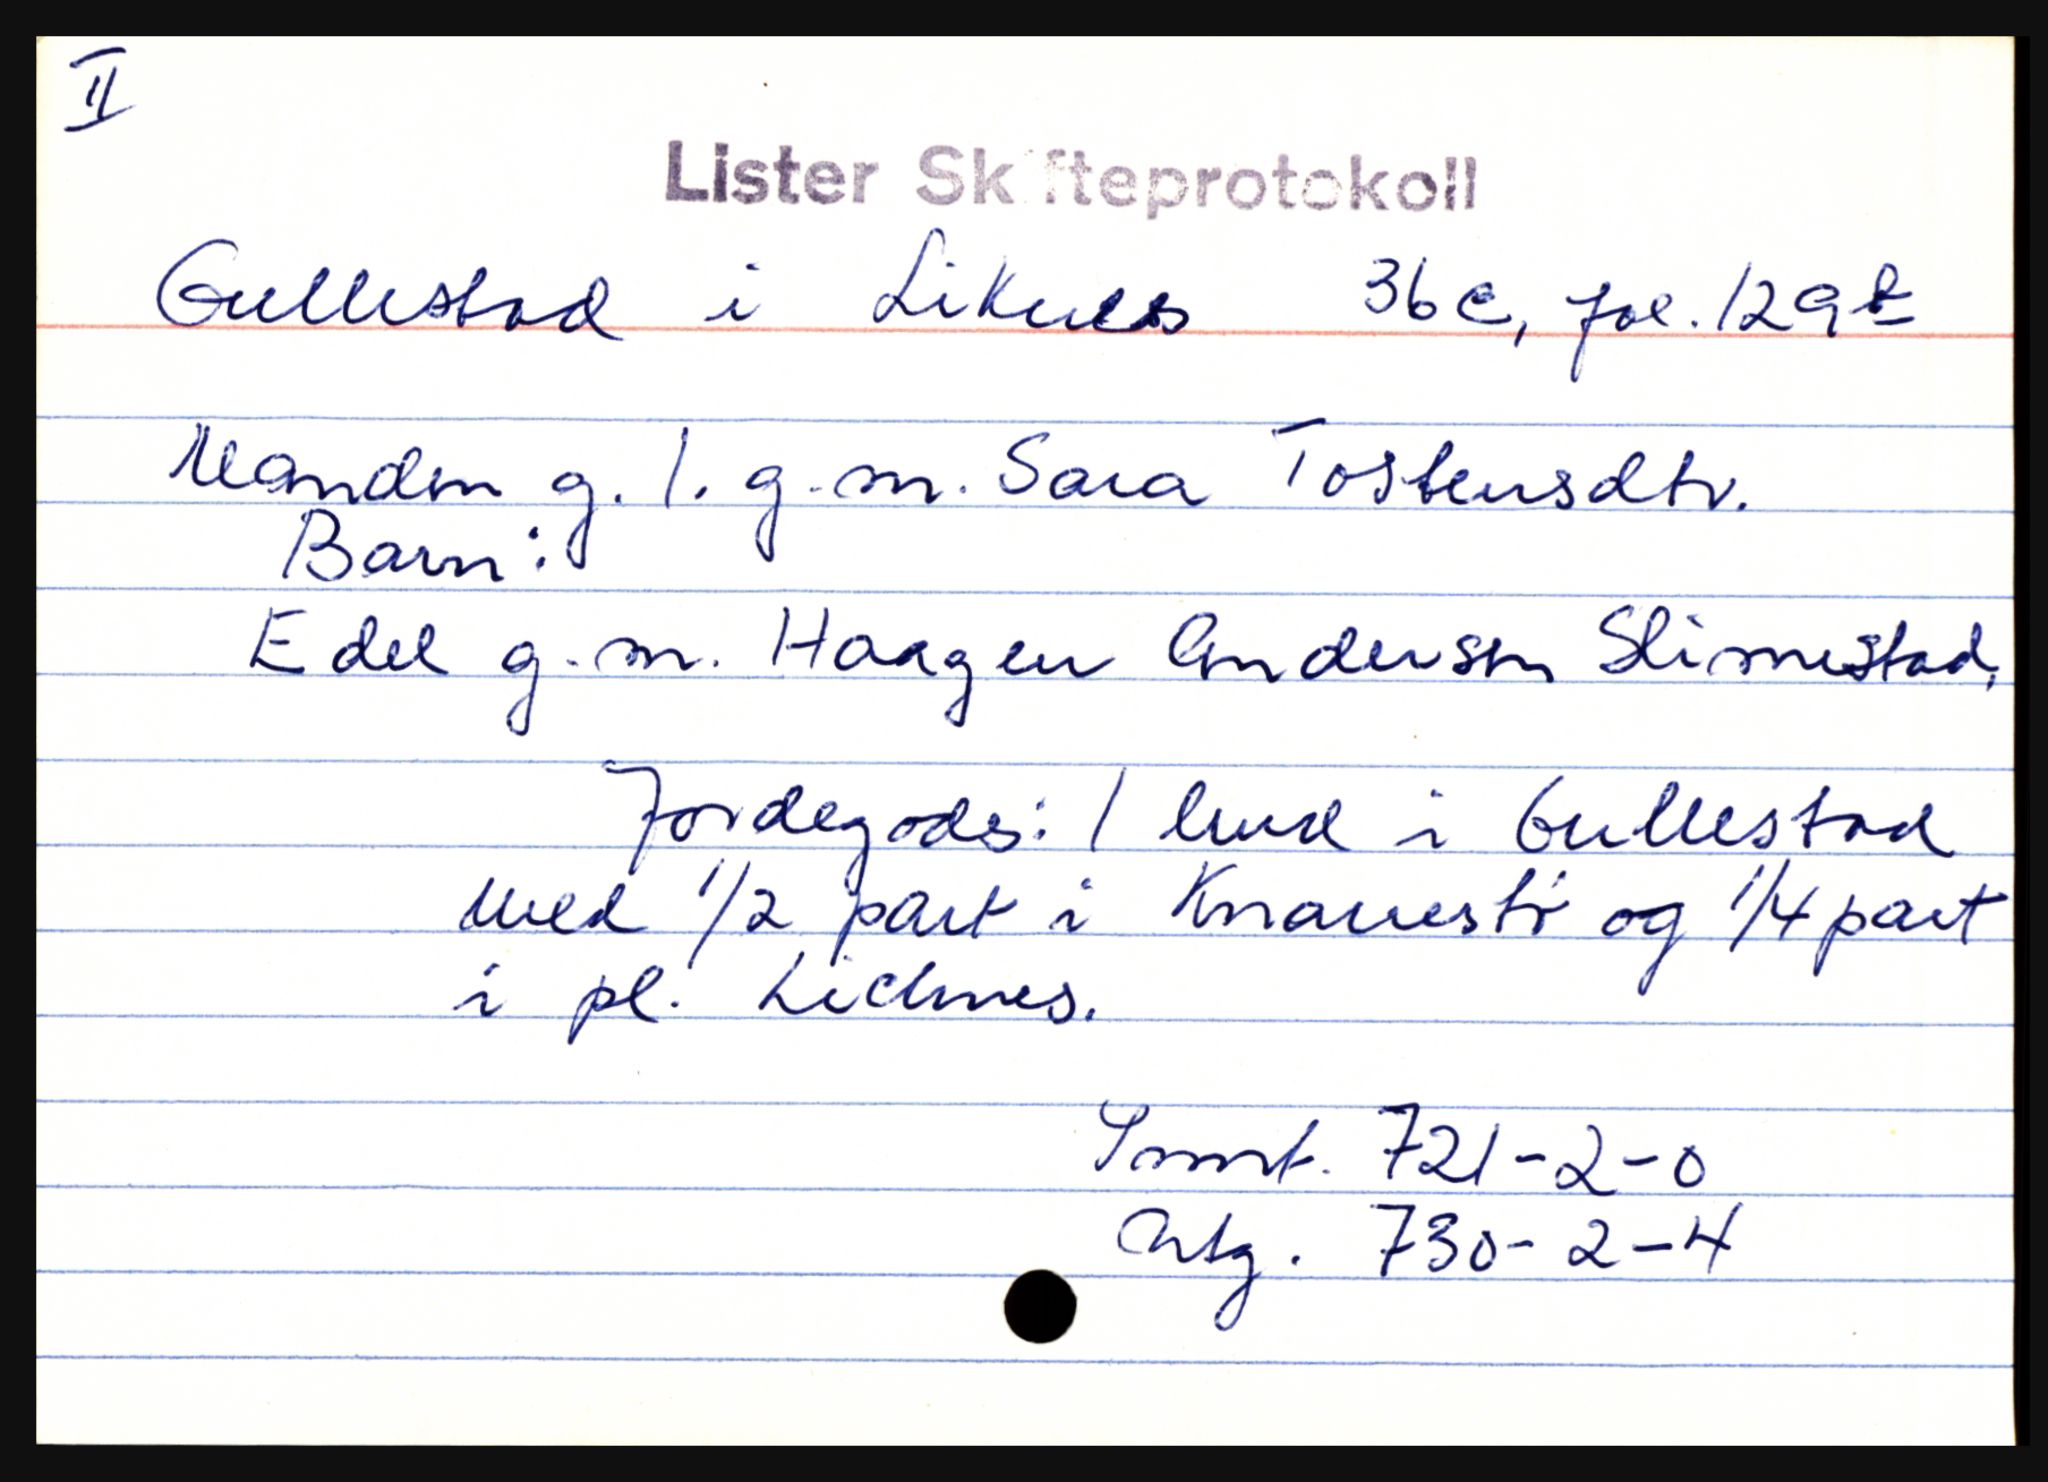 II
Lister Skifteprotokoll
Gullestad i Liknes 36c, fol. 129b
Manden g. 1. g.m. Sara Tostensdtr.
Barn:
Edel g.m. Haagen Andersen Slimestad.
Jordegods: 1 hud i Gullestad
med 1/2 part i Knauestø og 1/4 part
i pl. Lichnes.
Smt. 721-2-0
Utg. 730-2-4